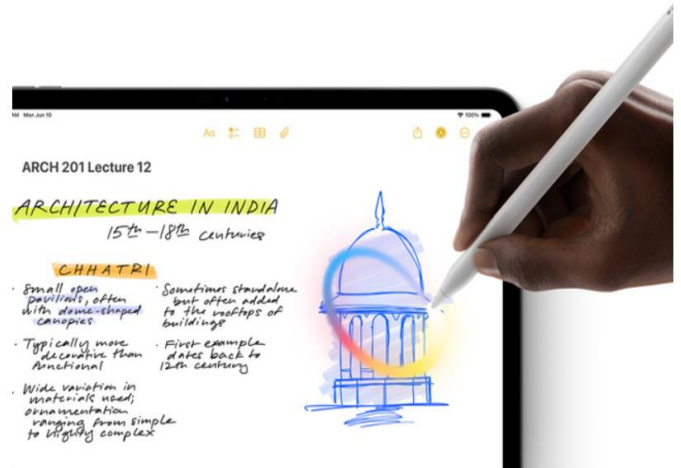 AM Mon Jun 10
100%
Aa
ARCH 201 Lecture 12
ARCHITECTURE IN INDIA
15th – 18th centuries
CHHATRI
· Small open
pavilions, often
with dome-shaped
canopies
· Typically more
decorative than
functional
· Wide variation in
materials used;
ornamentation
ranging from simple
to highly complex
· Sometimes standalone
but often added
to the rooftops of
buildings
· First example
dates back to
12th century